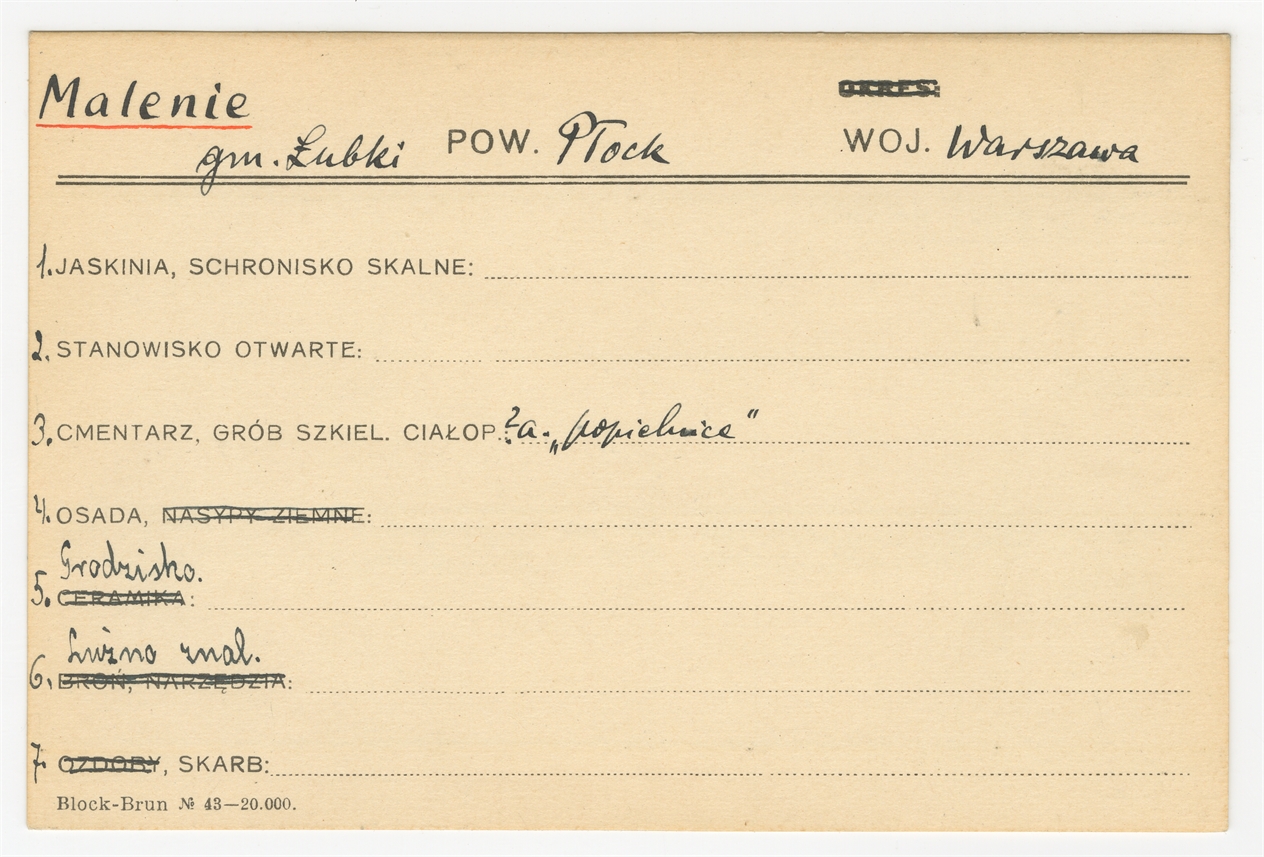 Malenie
OKRES:
gm. Łubki POW. Płock WOJ. Warszawa
1. JASKINIA, SCHRONISKO SKALNE:
2. STANOWISKO OTWARTE:
3. CMENTARZ, GRÓB SZKIEL. CIAŁOP.: ? a. „popielnice"
4. OSADA, NASYPY ZIEMNE:
Grodzisko.
5. CERAMIKA:
Luźno znal.
6. BROŃ, NARZĘDZIA:
7. OZDOBY, SKARB:
Block-Brun № 43—20.000.